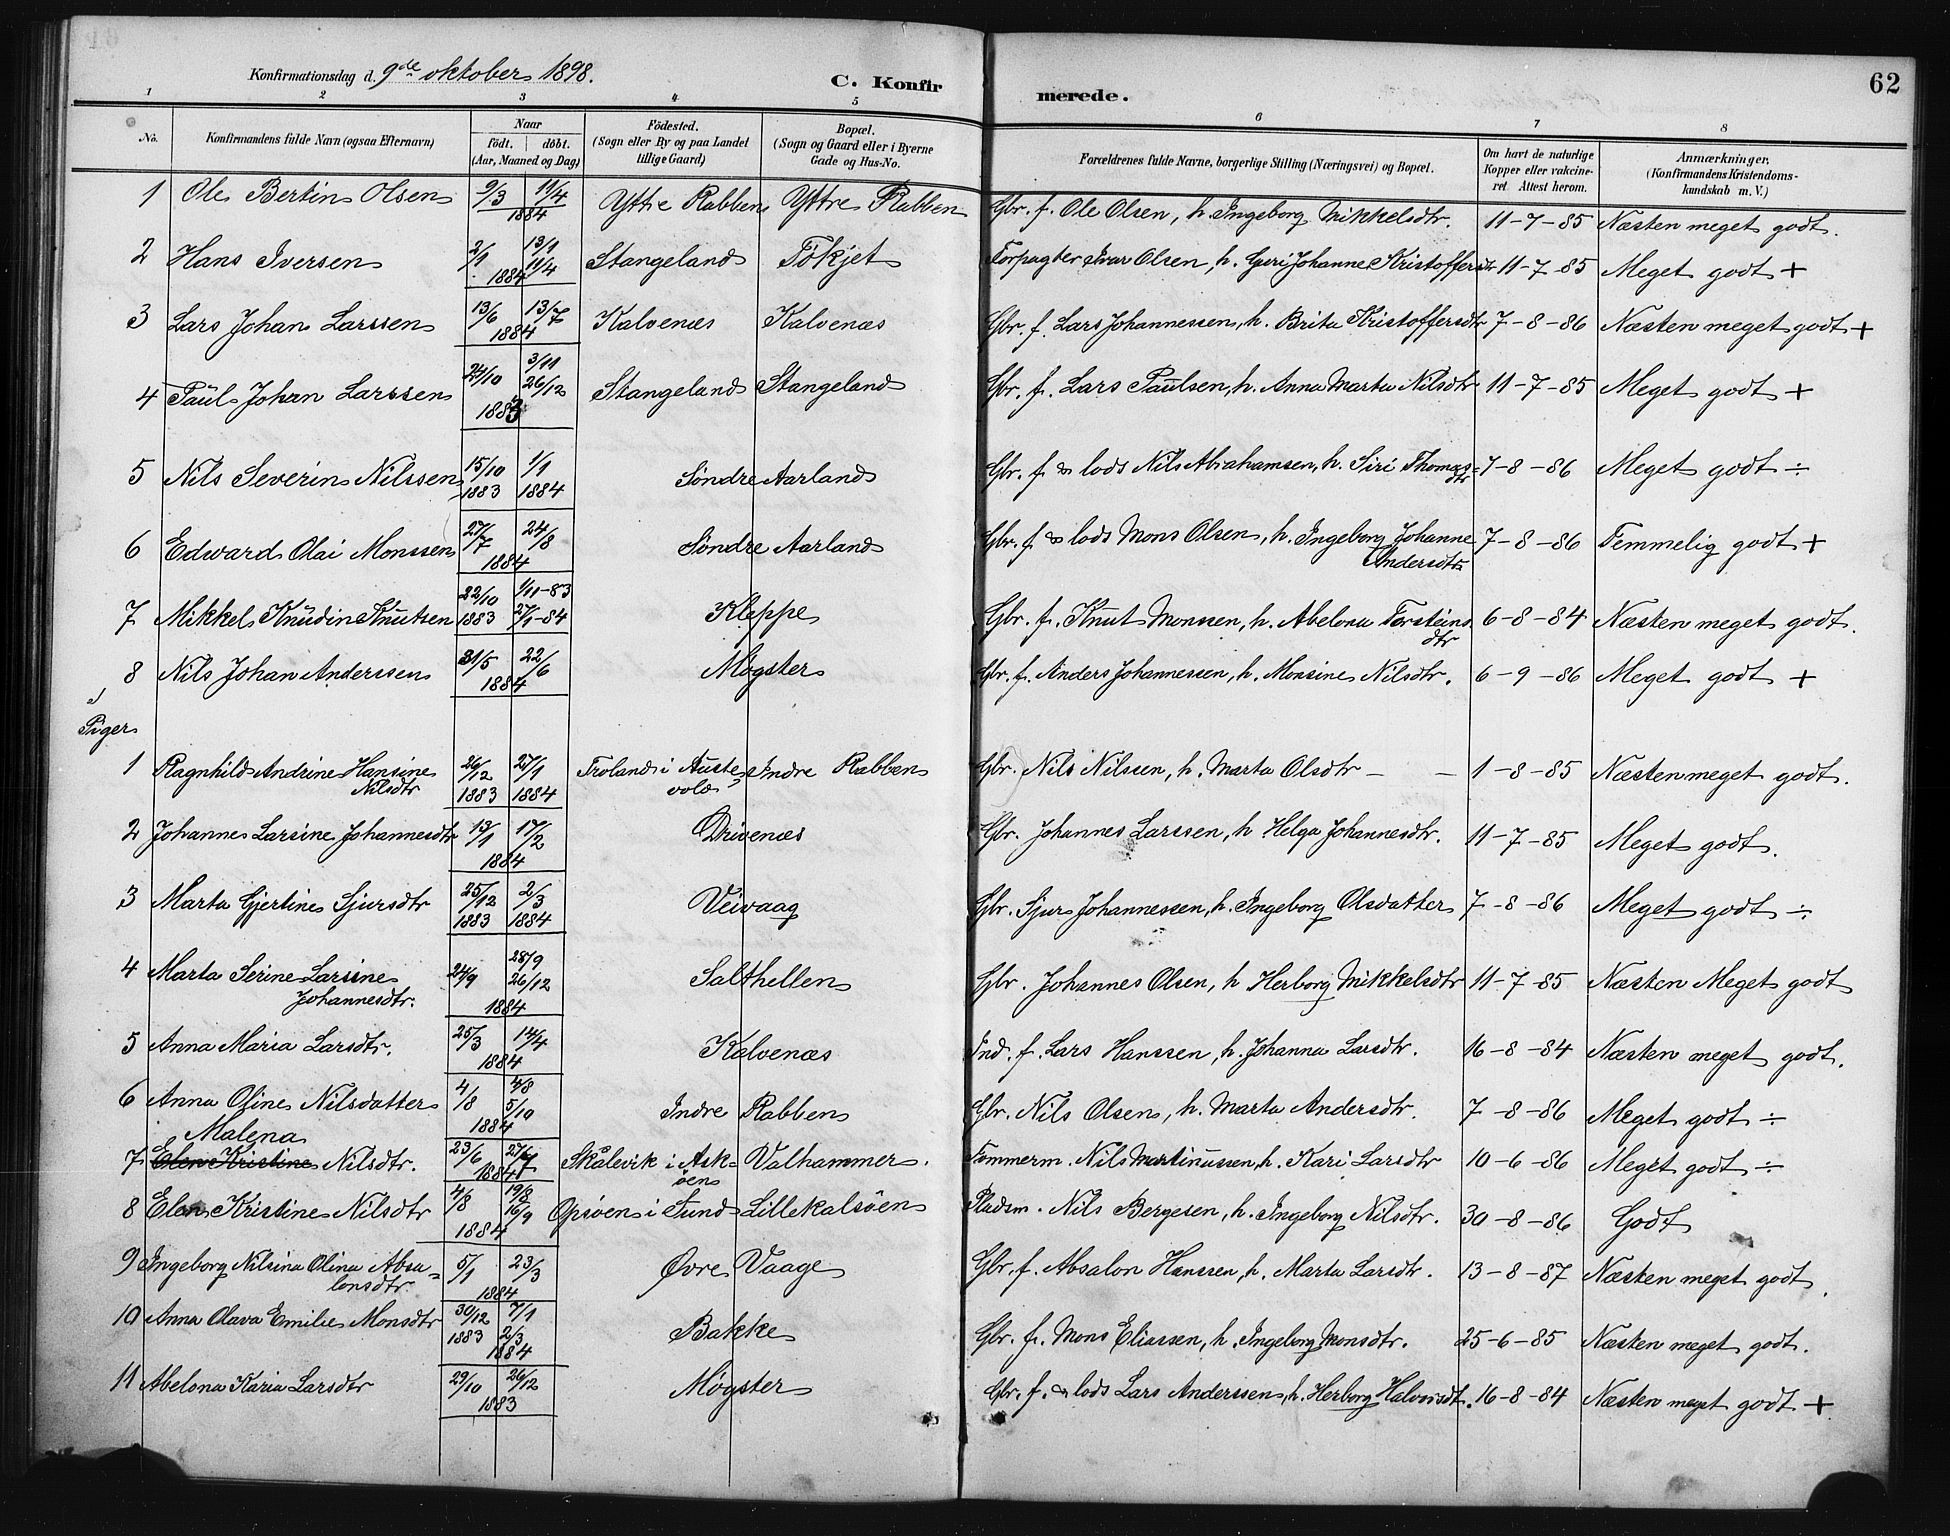 Konfirmationsdag d. 9de oktober 1898. C. Konfirmerede. 62
1 2 3 4 5 6 7 8
No. Konfirmandens fulde Navn (ogsaa Efternavn) Naar født. døbt. (Aar, Maaned og Dag) Fødested. (Sogn eller By og paa Landet tillige Gaard) Bopæl. (Sogn og Gaard eller i Byerne Gade og Hus-No. Forældrenes fulde Navne, borgerlige Stilling (Næringsvei) og Bopæl. Om havt de naturlige Kopper eller vakcineret. Attest herom. Anmærkninger. (Konfirmandens Kristendomskundskab m. V.)
1 Ole Bertin Olsen 9/3 11/4 1884 Yttre Rabben Yttre Rabben Gbr. f. Ole Olsen, h. Ingeborg Mikkelsdtr. 11-7-85 Næsten meget godt.
2 Hans Iversen 2/1 13/1 11/4 1884 Stangeland Tökjet Forpagter Ivar Olsen, h. Guri Johanne Kristoffersdtr 11-7-85 Meget godt +
3 Lars Johan Larssen 13/6 13/7 1884 Kalvenæs Kalvenæs Gbr. f. Lars Johannessen, h. Brita Kristoffersdtr 7-8-86 Næsten meget godt +
4 Paul Johan Larssen 24/10 3/11 26/12 1883 Stangeland Stangeland Gbr. f. Lars Paulsen, h. Anna Marta Nilsdtr 11-7-85 Meget godt +
5 Nils Severin Nilssen 15/10 1883 1/1 1884 Söndre Aarland Gbr. f. & lods Nils Abrahamsen, h. Siri Thomasdtr 7-8-86 Meget godt ÷
6 Edward Olai Monssen 27/7 24/8 1884 Söndre Aarland Gbr. f. & lods Mons Olsen, h. Ingeborg Johanne Andersdtr 7-8-86 Temmelig godt +
7 Mikkel Knudin Knutsen 22/10 1883 1/11-83 27/1-84 Kleppe Gbr. f. Knut Monssen, h. Abelona Torsteinsdtr 6-8-84 Næsten meget godt.
8 Nils Johan Anderssen 31/5 22/6 1884 Møgster Gbr. f. Anders Johannessen, h. Monsine Nilsdtr. 6-9-86 Meget godt +
Piger
1 Ragnhild Andrine Hansine Nilsdtr 26/12 1883 27/1 1884 Troland i Austevold Indre Rabben Gbr. Nils Nilssen, h. Marta Olsdtr - - 1-8-85 Næsten meget godt.
2 Johanne Larsine Johannesdtr 13/1 17/2 1884 Drivenæs Gbr. Johannes Larssen, h Helga Johannesdtr. 11-7-85 Meget godt.
3 Marta Gjertine Sjursdtr 25/12 1883 2/3 1884 Veivaag Gbr. Sjur Johannessen, h. Ingeborg Olsdatter 7-8-86 Meget godt ÷
4 Marta Serine Larsine Johannesdtr. 24/9 28/9 26/12 1884 Salthellen Gbr. Johannes Olsen, h Herborg Mikkelsdtr 11-7-85 Næsten Meget godt
5 Anna Maria Larsdtr. 25/3 14/4 1884 Kalvenæs Ind. f. Lars Hanssen, h. Johanna Larsdtr. 16-8-84 Næsten meget godt.
6 Anna Oline Nilsdatter 4/8 4/8 5/10 1884 Indre Rabben Gbr. Nils Olsen, h. Marta Andersdtr. 7-8-86 Meget godt ÷
Malena
7 Elen Kristine Nilsdtr. 23/6 27/7 1884 Skålevik i Askøen Valhammer. Tømmerm. Nils Martinussen, h. Kari Larsdtr 10-6-86 Meget godt ÷
8 Elen Kristine Nilsdtr 4/8 19/8 16/9 1884 Opsøen i Sund Lillekalsöen Pladsm. Nils Bergesen, h. Ingeborg Nilsdtr. 30-8-86 Godt
9 Ingeborg Nilsina Olina Absalonsdtr. 5/1 23/3 1884 Øvre Vaage Gbr. f. Absalon Hanssen, h. Marta Larsdtr. 13-8-87 Næsten meget godt.
10 Anna Olava Emilie Monsdtr 30/12 1883 7/1 2/3 1884 Bakke Gbr. f. Mons Eliassen, h. Ingeborg Monsdtr. 25-6-85 Næsten meget godt.
11 Abelona Karia Larsdtr 29/10 26/12 1883 Møgster Gbr. f. & lods Lars Anderssen, h. Herborg Halvorsdt. 16-8-84 Næsten meget godt +